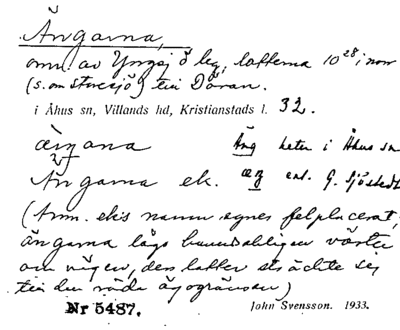 Ängarna,
omr. av Yngsj ö beg. latterna 10²⁸ i norr
(s. om sturesjö) till Döran.
i Åhus sn, Villands hd, Kristianstads l. 32.
äŋana Äng heter i Åhus sn
Ängarna ek. æŋ enl. G. Sjöstedt
(Anm. ek:s namn synes felplacerat,
ängarna lågo huvudsakligen väster
om vägen, den latter sträckte sig
till den röda ägogränsen)
Nr 5487. John Svensson. 1933.